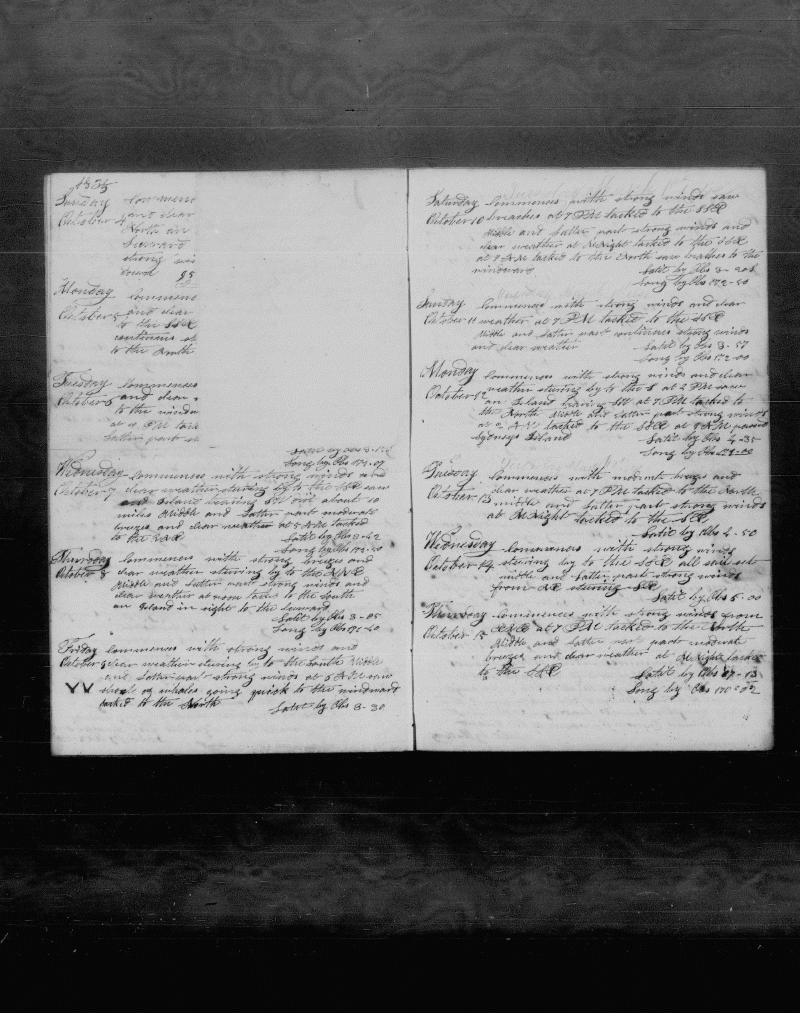 1835
Sunday Commenc
October 4 and clear
North an
strong win
down 85
Monday Commens
October 5 and clear
to the SSE
continues st
to the North
Tuesday Commences
October 6 and clear
to the windw
at 4 PM tack
Latter part st
Latit by Obs 3-
Long by Obs 173-07
Wednesday Commences with strong winds and
October 7 clear weather steering by to the SE saw
an Island bearing SW dist about 10
miles Middle and Latter part moderate
breezes and clear weather at 5 AM tacked
to the
Latit by Obs 3-42
Long by Obs 172-20
Thursday Commences with strong breezes and
October 8 clear weather steering by to the NNE
Middle and Latter part strong winds and
clear weather at noon tack to the South
an Island in sight to the Leeward
Latit by Obs 3-05
Long by Obs 172-40
Friday Commences with strong winds and
October 9 clear weather stering by to the South Middle
and Latter part strong winds at 6 AM saw
shoal of whales going quick to the windward
tacked to the North
Latit by Obs 3-30
Saturday Commences with strong winds saw
October 10 breaches at 7 PM tacked to the SSE
Middle and Latter part strong winds and
clear weather at MNight tacked to the SSE
at 7 AM tacked to the North saw breaches to the
windward Latit by Obs 3-20S
Long by Obs 172-50
Sunday Commences with strong winds and clear
October 11 weather at 7 PM tacked to the SSE
Middle and Latter part continues strong winds
and clear weather Latit by Obs 3-57
Long by Obs 172-00
Monday Commences with strong winds and clear
October 12 weather stering by to the S at 2 PM saw
an Island bearing SW at 7 PM tacked to
the North Middle and Latter part strong winds
at 2 AM tacked to the SSE at 9 AM passed
Sydneys Island Latit by Obs 4-35
Long by Obs 171-00
Tuesday Commences with moderate breezes and
October 13 clear weather at 7 PM tacked to the North
middle and Latter part strong winds
at MNight tacked to the SE
Latit by Obs 4-50
Wednesday Commences with strong winds
October 14 stering by to the SSE all sail set
middle and Latter part strong winds
from NE stering SE
Latit by Obs 5-00
Thursday Commences with strong winds from
October 15 ENE at 7 PM tacked to the North
Middle and Latter part moderate
breezes and clear weather at MNight tacked
to the SSE Latit by Obs 04-13
Long by Obs 170-02